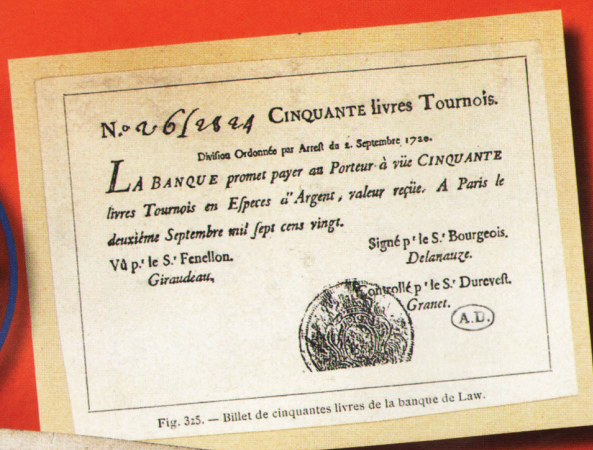 N.º 2612824 CINQUANTE livres Tournois.
Division Ordonnée par Arrest du 2. Septembre 1720.
LA BANQUE promet payer au Porteur à vüe CINQUANTE
livres Tournois en Especes d'Argent, valeur reçüe. A Paris le
deuxiéme Septembre mil sept cens vingt.
Vû p.r le S.r Fenellon.
Giraudeau,
Signé p.r le S.r Bourgeois.
Delanauze.
Controllé p.r le S.r Durevest.
Granet.
A.D.
Fig. 325. — Billet de cinquantes livres de la banque de Law.